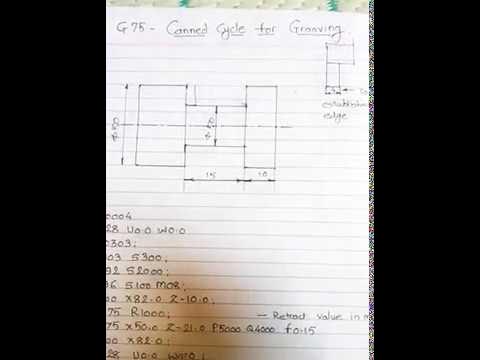 G75 - Canned Cycle for Grooving.
edge
15
10
0004
28 U0.0 W0.0
0303;
03 S300;
92 S2000;
96 S100 M08;
00 X82.0 Z-10.0;
75 R1000; - Retract value in m
75 X50.0 Z-21.0 P5000 Q4000 f0.15
00 X82.0;
28 U0.0